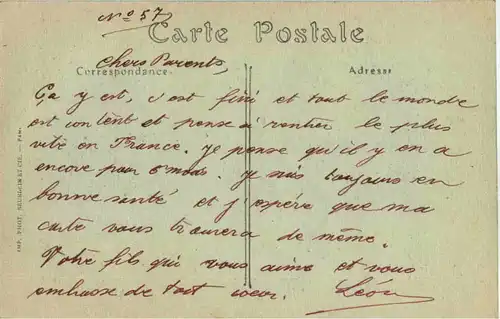 No 57
Carte Postale
Chers Parents,
Correspondance
Adresse
Ça y est, c'est fini et tout le monde
est content et pense à rentrer le plus
vite en France. Je pense qu'il y en a
encore pour 6 mois. Je suis toujours en
bonne santé et j'espère que ma
carte vous trouvera de même.
Votre fils qui vous aime et vous
embrasse de tout coeur. Léon
IMP. PHOT.